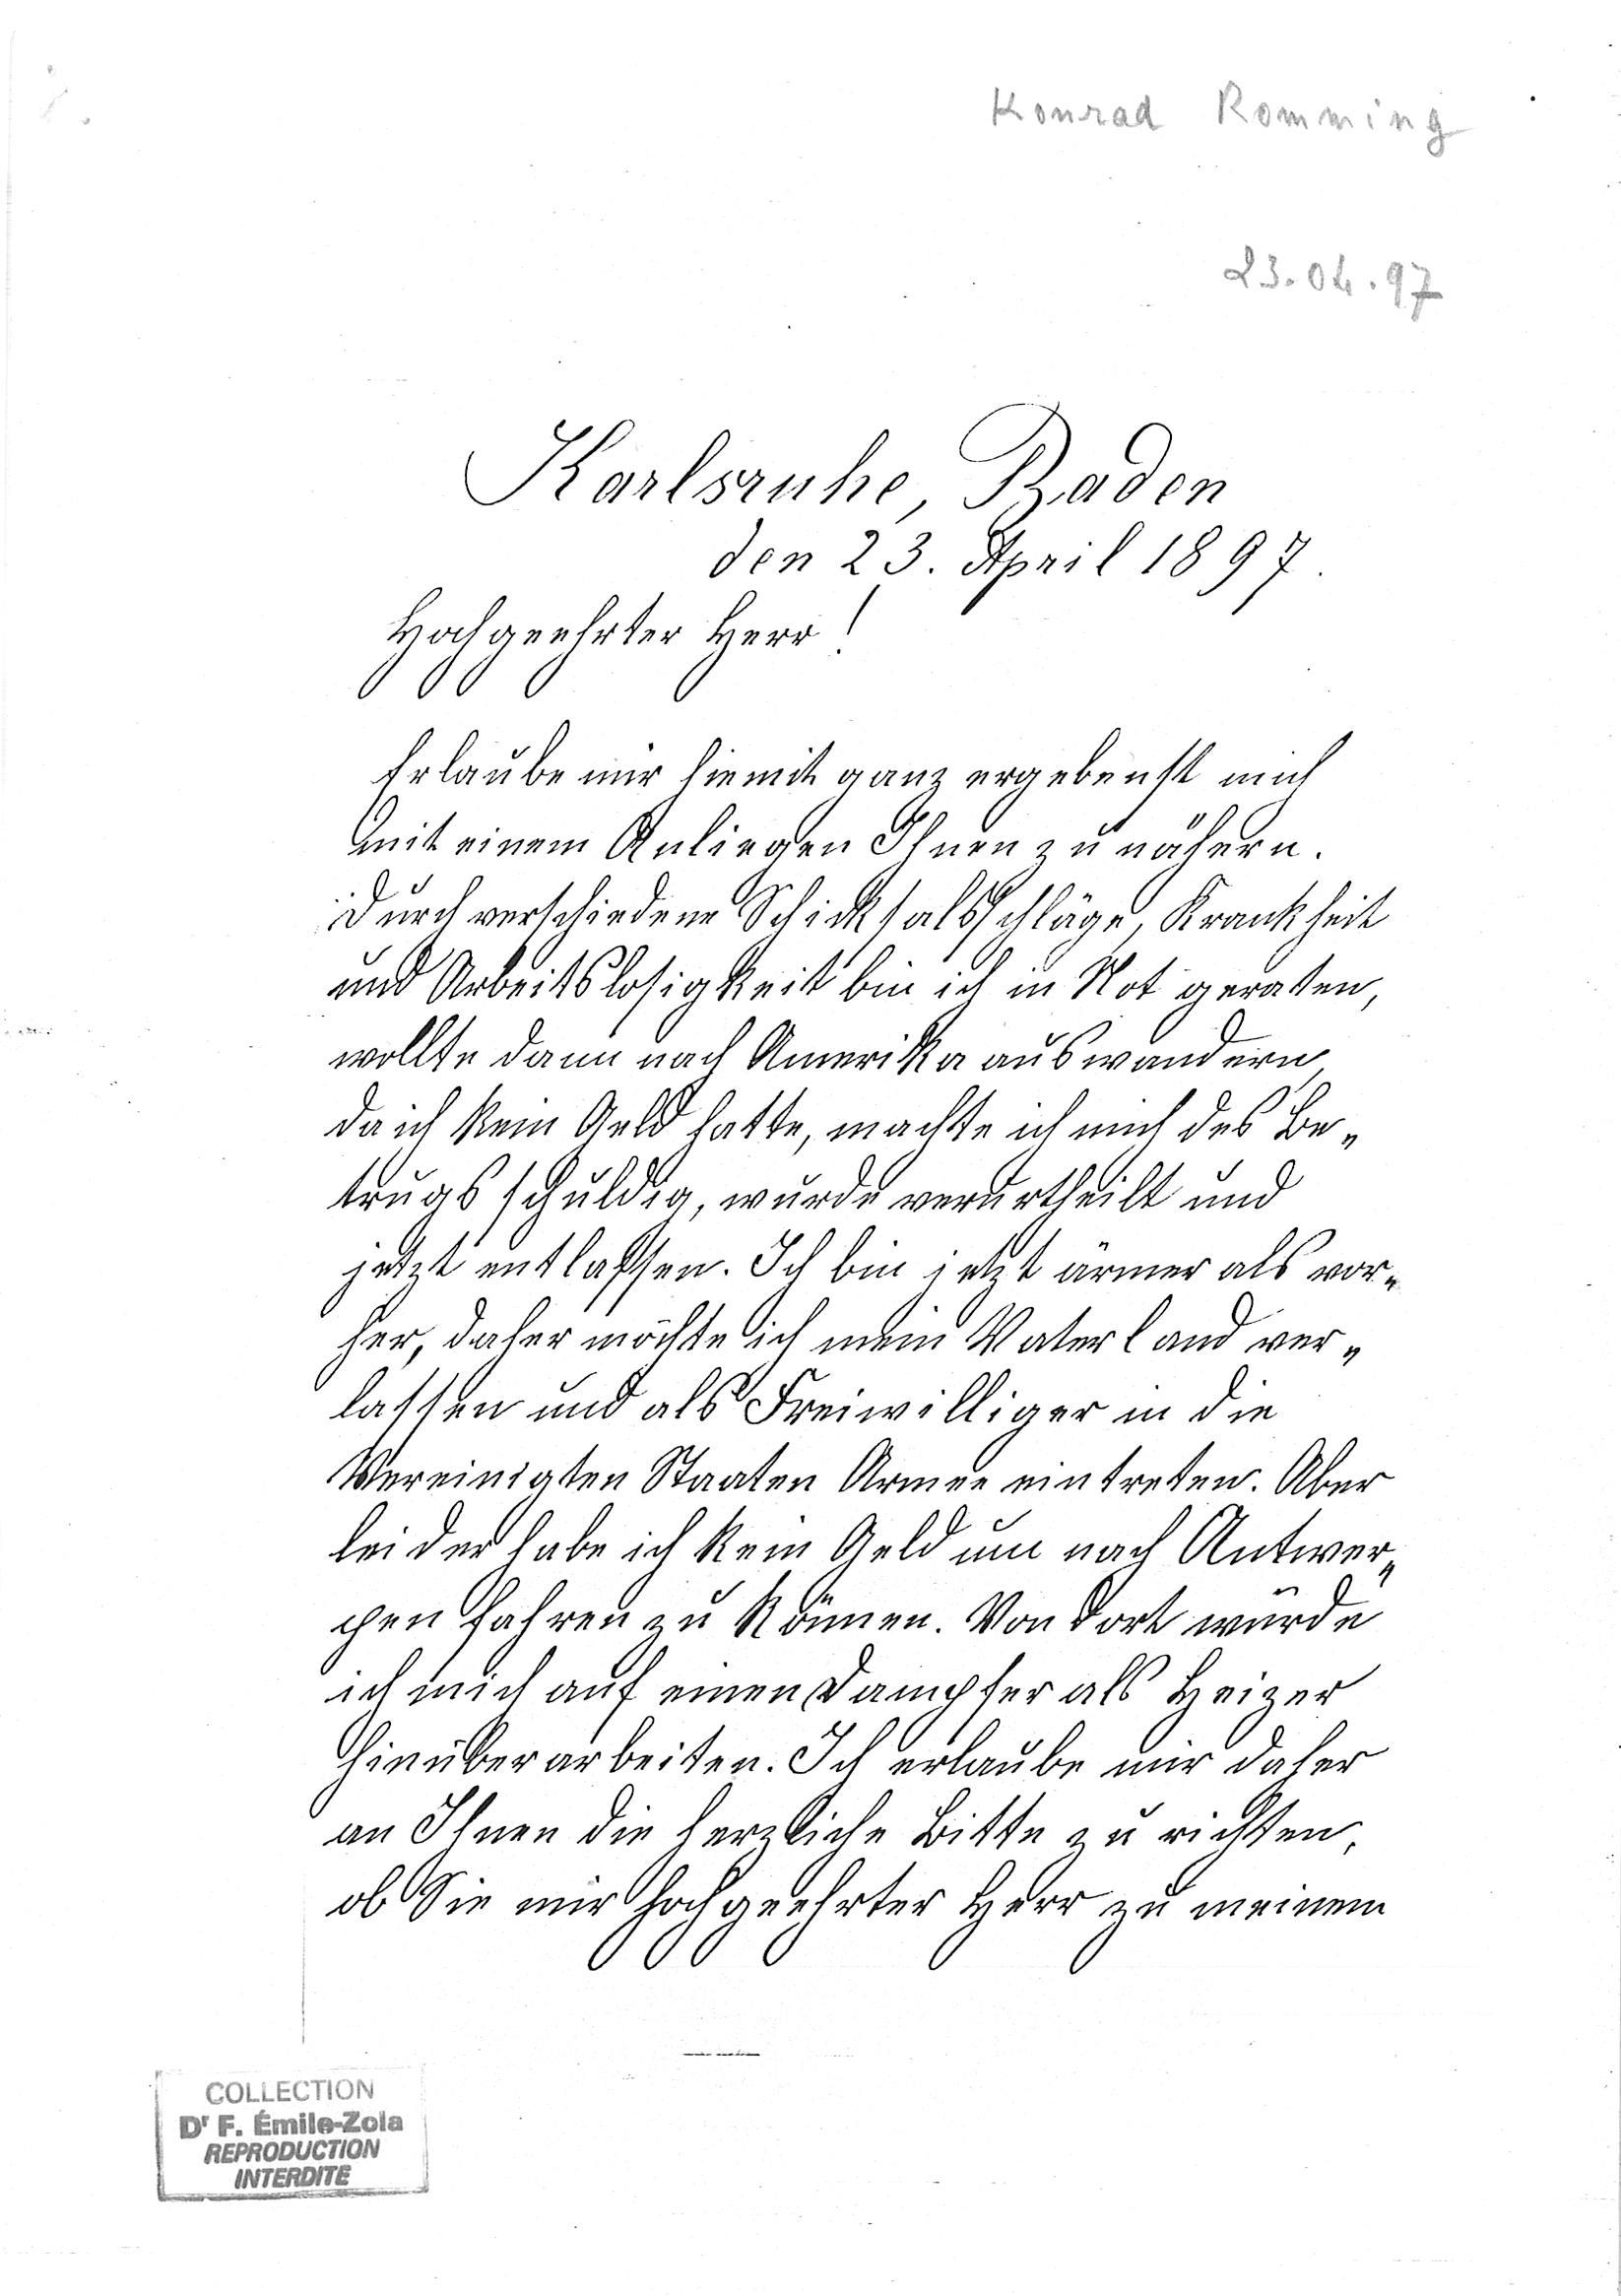 Konrad Romming
23.04.97
Karlsruhe, Baden
den 23. April 1897.
Hochgeehrter Herr!
Erlaube mir hiemit ganz ergebenst mich
mit einem Anliegen Ihnen zu nähern.
Durch verschiedene Schicksalsschläge, Krankheit
und Arbeitslosigkeit bin ich in Not geraten,
wollte dann nach Amerika auswandern,
da ich kein Geld hatte, machte ich mich des Be„
trugs schuldig, wurde verurtheilt und
jetzt entlassen. Ich bin jetzt ärmer als vor„
her, daher möchte ich mein Vaterland ver„
lassen und als Freiwilliger in die
Vereinigten Staaten Armee eintreten. Aber
leider habe ich kein Geld um nach Antwer„
pen fahren zu können. Von dort würde
ich mich auf einen Dampfer als Heizer
hinüberarbeiten. Ich erlaube mir daher
an Ihnen die herzliche Bitte zu richten,
ob Sie mir hochgeehrter Herr zu meinem
COLLECTION
Dr F. Émile-Zola
REPRODUCTION
INTERDITE